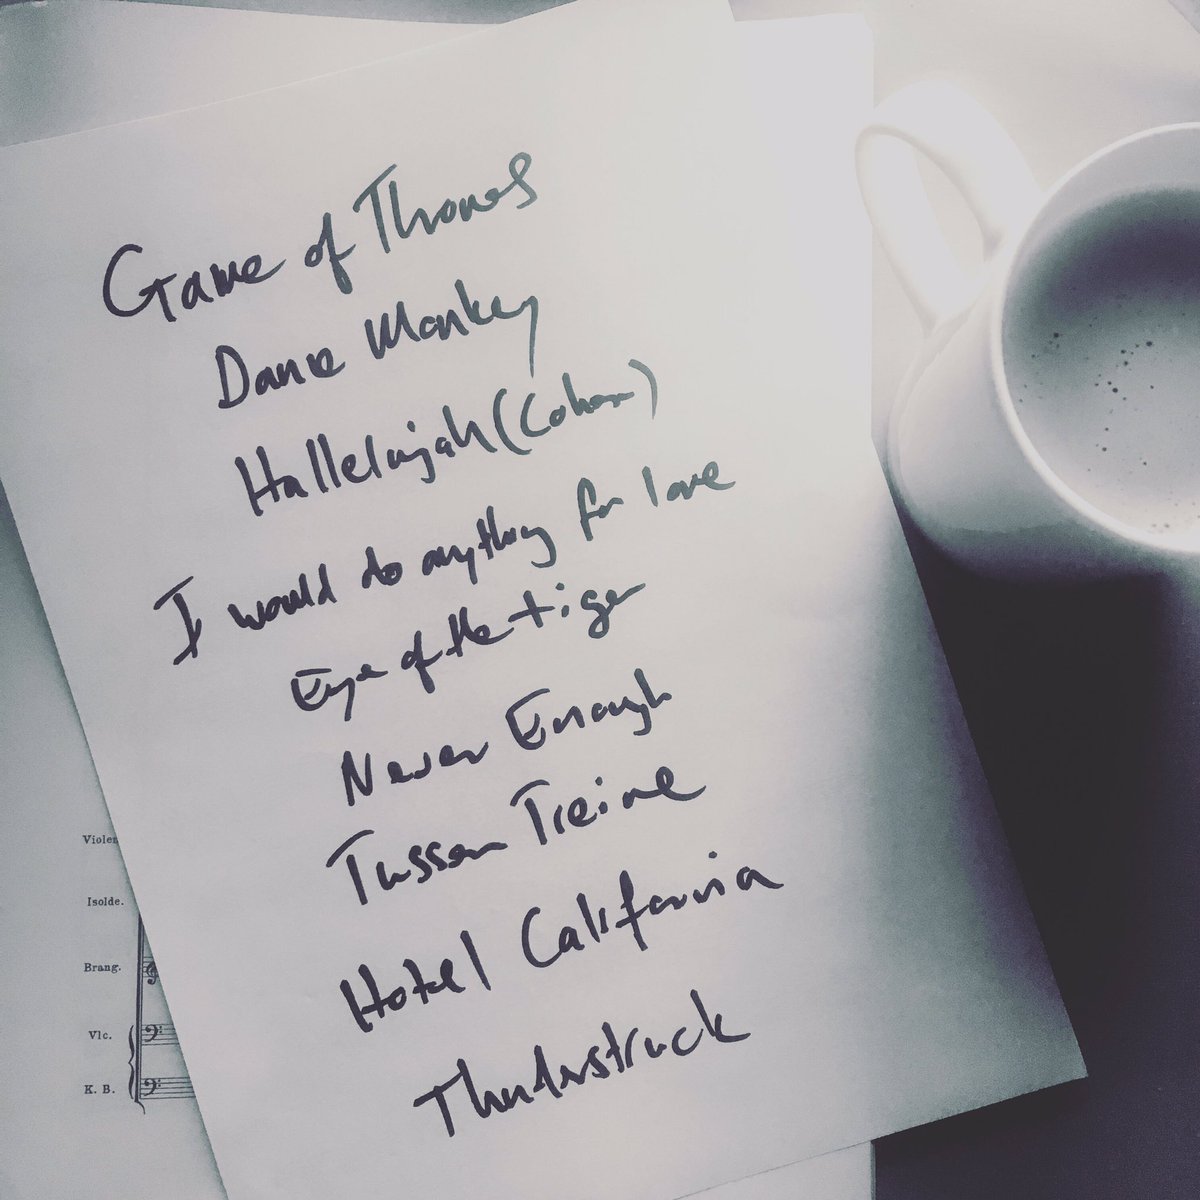 Game of Thrones
Dance Monkey
Hallelujah (Cohen)
I would do anything for love
Eye of the tiger
Never Enough
Tussen Treine
Hotel California
Thunderstruck
Violen
Isolde.
Brang.
Vlc.
K. B.